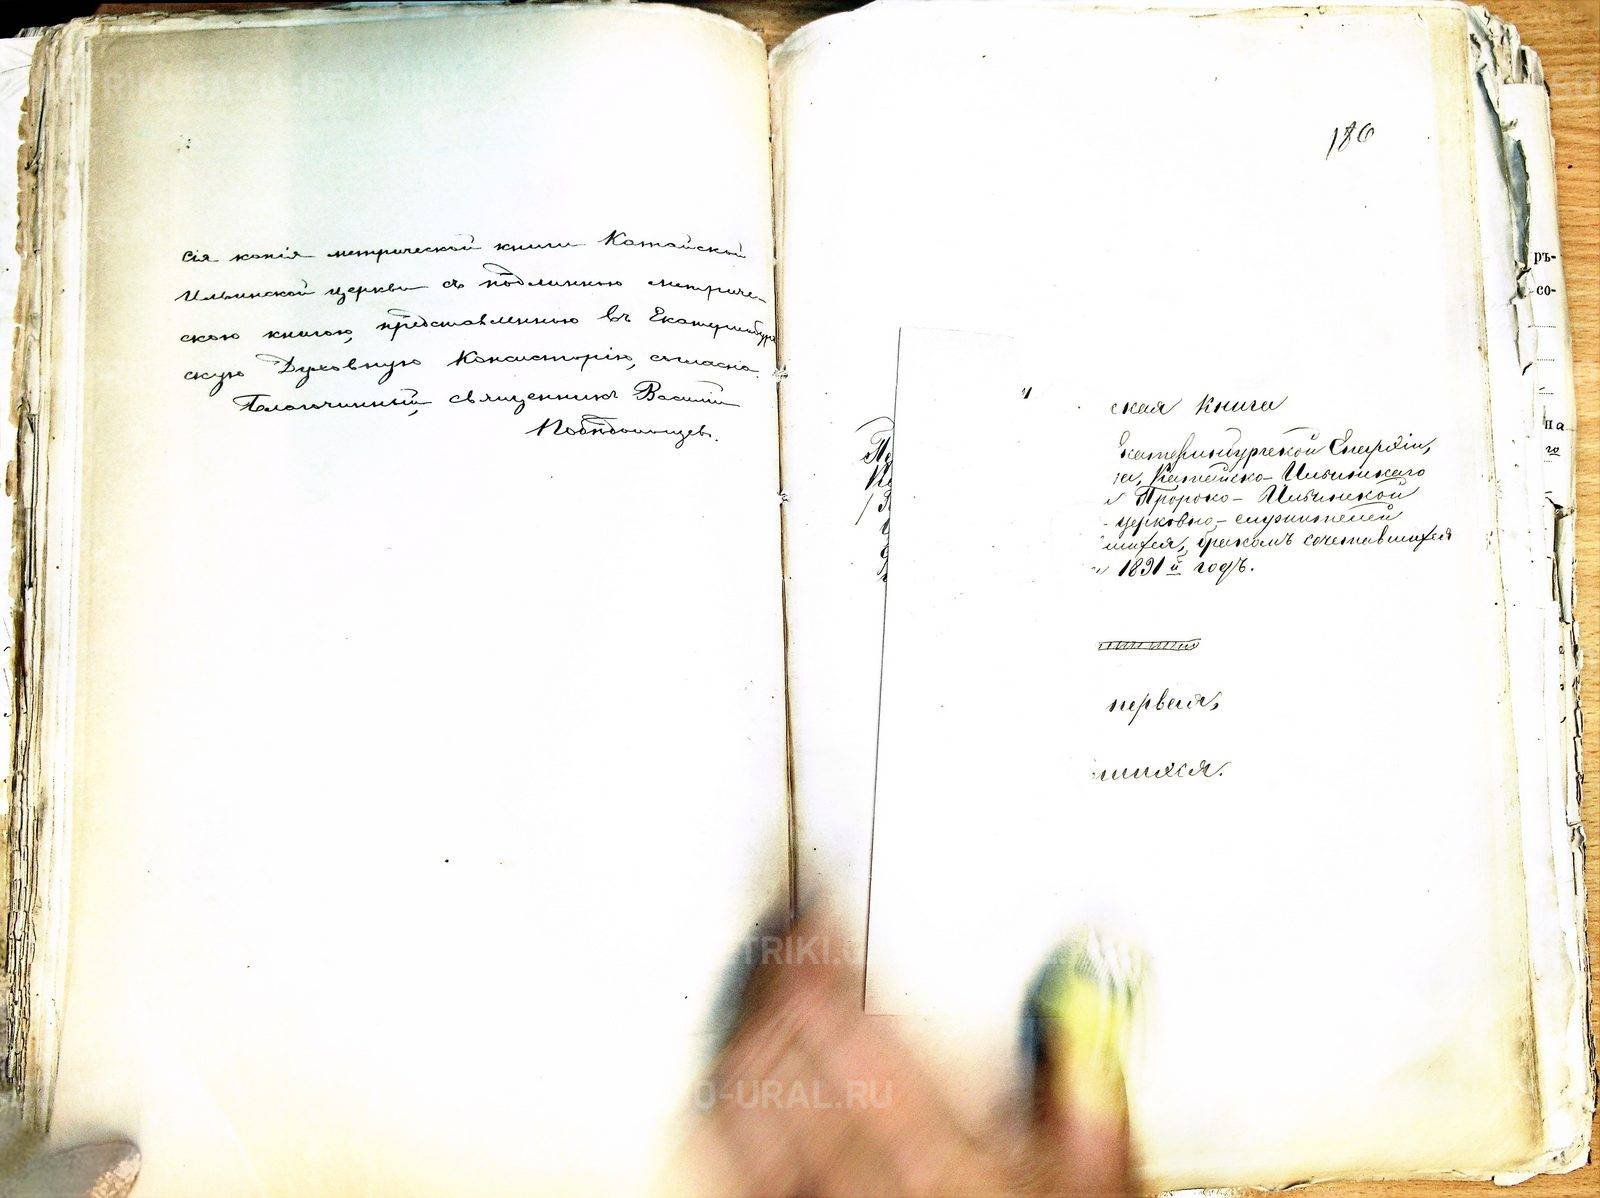 сія копія метрической книги Катайской
Ильинской церкви съ подлинною метриче-
скою книгою, представленною въ Екатеринбург
скую Духовную Консисторію, согласна.
Благочинный, священникъ Василій
Победоносцев.
186
ская Книга
Екатеринбургской Епархіи,
Катайско-Ильинскаго
Пророко-Ильинской
церковно-служителей
шихся, бракомъ сочетавшихся
1891й годъ.
первая,
шихся.
ръ-
со-
на
го
TRIKI.GASU-URAL.RU
TRIKI.G
O-URAL.RU